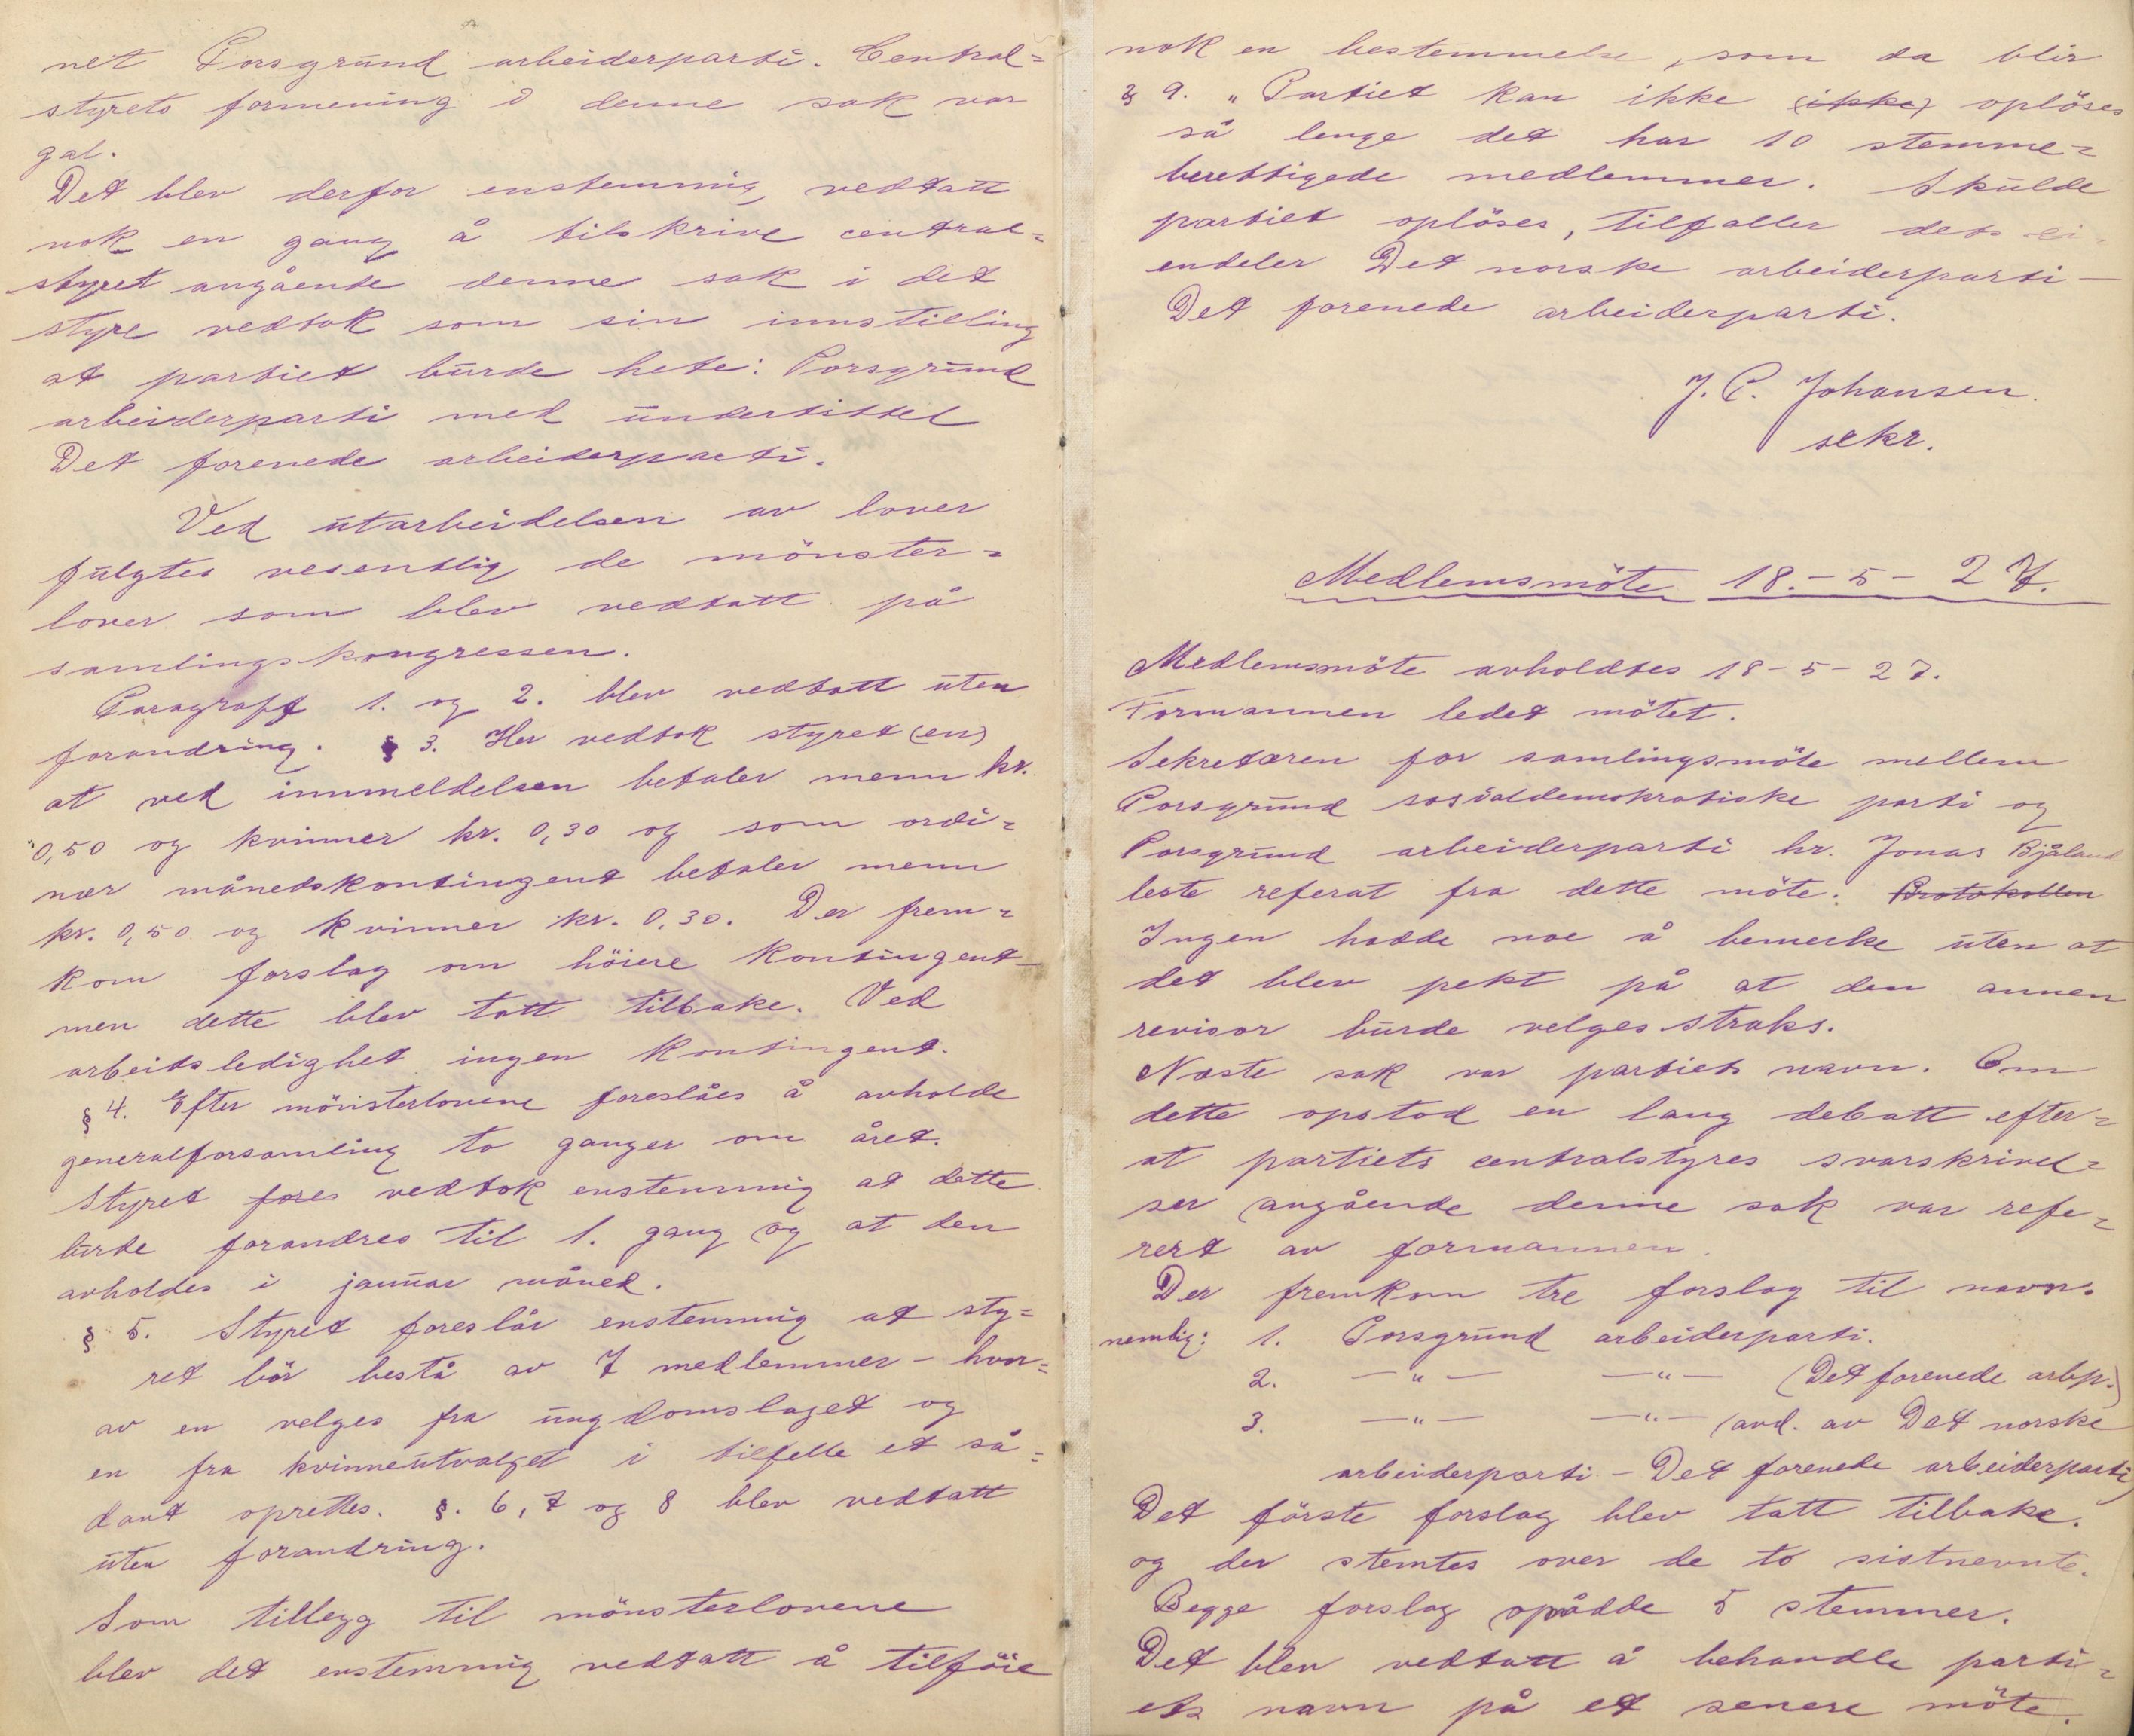 net Porsgrund arbeiderparti. Central=
styrets formening i denne sak var
gal.
Det blev derfor enstemmig vedtatt
nok en gang å tilskrive central=
styret angående denne sak i det
styre vedtok som sin innstilling
at partiet burde hete: Porsgrund
arbeiderparti med undertittel
Det forenede arbeiderparti.
Ved utarbeidelsen av lover
fulgtes vesentlig de mönster=
lover som blev vedtatt på
samlingskongressen.
Paragraff 1. og 2. blev vedtatt uten
forandring. § 3. Her vedtok styret (en)
at ved innmeldelsen betaler menn kr.
0,50 og kvinner kr. 0,30 og som ordi=
nær månedskontingent betaler menn
kr. 0,50 og kvinner kr. 0,30. Der frem=
kom forslag om höiere kontingent
men dette blev tatt tilbake. Ved
arbeidsledighet ingen kontingent.
§ 4. Efter mönsterlovene foreslåes å avholde
generalforsamling to ganger om året.
Styret fores vedtok enstemmig at dette
burde forandres til 1. gang og at den
avholdes i januar måned.
§ 5. Styret foreslår enstemmig at sty=
ret bör bestå av 7 medlemmer - hvor=
av en velges fra ungdomslaget og
en fra kvinneutvalget i tilfelle et så=
dant oprettes. §. 6, 7 og 8 blev vedtatt
uten forandring.
Som tillegg til mönsterlovene
blev det enstemmig vedtatt å tilföie
nok en bestemmelse, som da blir
§ 9. „Partiet kan ikke (ikke) oplöses
så lenge det har 10 stemme=
berettigede medlemmer. Skulde
partiet oplöses, tilfaller dets ei=
endeler Det norske arbeiderparti —
Det forenede arbeiderparti.
J. P. Johansen.
sekr.
Medlemsmöte 18.-5-27.
Medlemsmöte avholdtes 18-5-27.
Formannen ledet mötet.
Sekretæren for samlingsmöte mellem
Porsgrund sosialdemokratiske parti og
Porsgrund arbeiderparti hr. Jonas Bjåland
leste referat fra dette möte. Protokollen
Ingen hadde noe å bemerke uten at
det blev pekt på at den annen
revisor burde velges straks.
Næste sak var partiets navn. Om
dette opstod en lang debatt efter=
at partiets centralstyres svarskrivel=
ser angående denne sak var refe=
rert av formannen.
Der fremkom tre forslag til navn.
nemlig: 1. Porsgrund arbeiderparti.
2. —„— —„— (Det forenede arbp.)
3. —„— —„— (avd. av Det norske
arbeiderparti - Det forenede arbeiderparti)
Det förste forslag blev tatt tilbake.
og der stemtes over de to sistnevnte.
Begge forslag opådde 5 stemmer.
Det blev vedtatt å behandle parti=
ets navn på et senere möte.